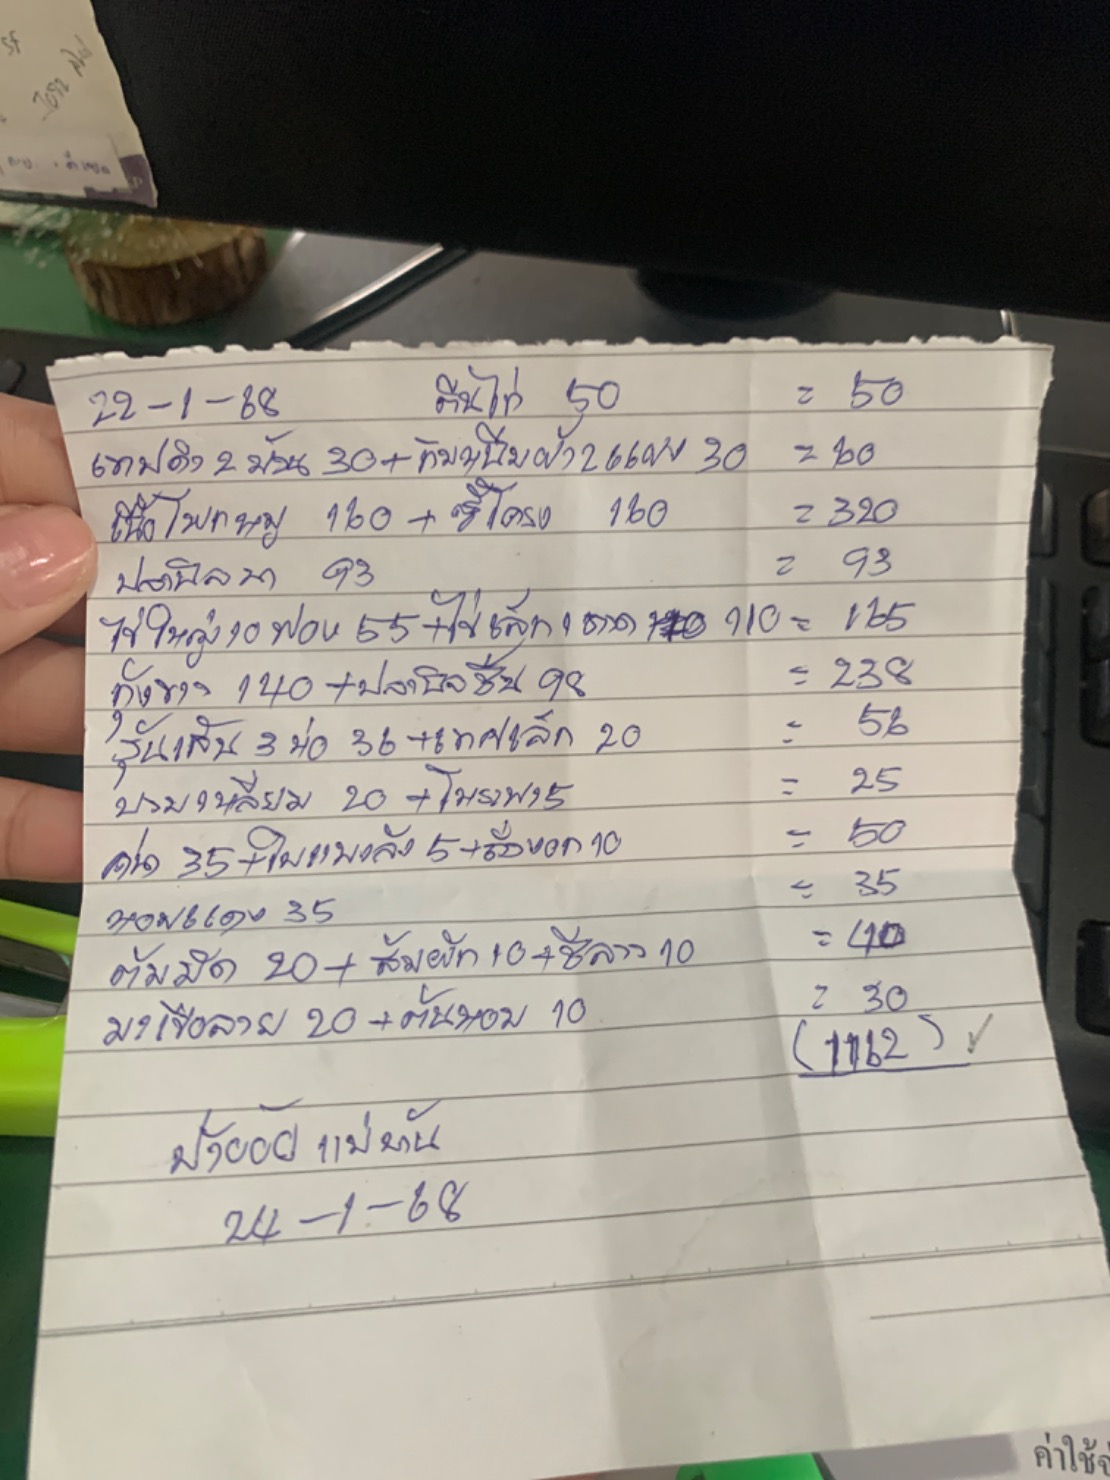 22-1-68 ตีนไก่ 50 = 50
เทปดำ 2 ม้วน 30 + กิ๊บหนีบผ้า 2 แผง 30 = 60
เนื้อโพกหมู 160 + ซี่โครง 160 = 320
ปลานิลนา 93 = 93
ไข่ใหญ่ 10 ฟอง 55 + ไข่เล็ก 1 ถาด 110 = 165
กุ้งขาว 140 + ปลานิลชิ้น 98 = 238
วุ้นเส้น 3 ห่อ 36 + เทศเล็ก 20 = 56
บวบเหลี่ยม 20 + โหระพา 5 = 25
35 + ใบแมงลัก 5 + ถั่วงอก 10 = 50
หอมแดง 35 = 35
20 + ส้มผัก 10 + ชีลาว 10 = 40
มะเขือลาย 20 + ต้นหอม 10 = 30
(1162) ✓
แม่
24-1-68
ค่าใช้จ่